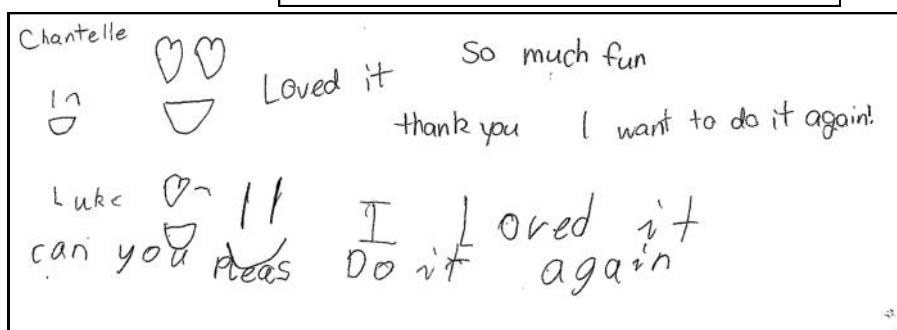 Chantelle
Loved it
So much fun
thank you I want to do it again!
Luke
I Loved it
can you pleas Do it again